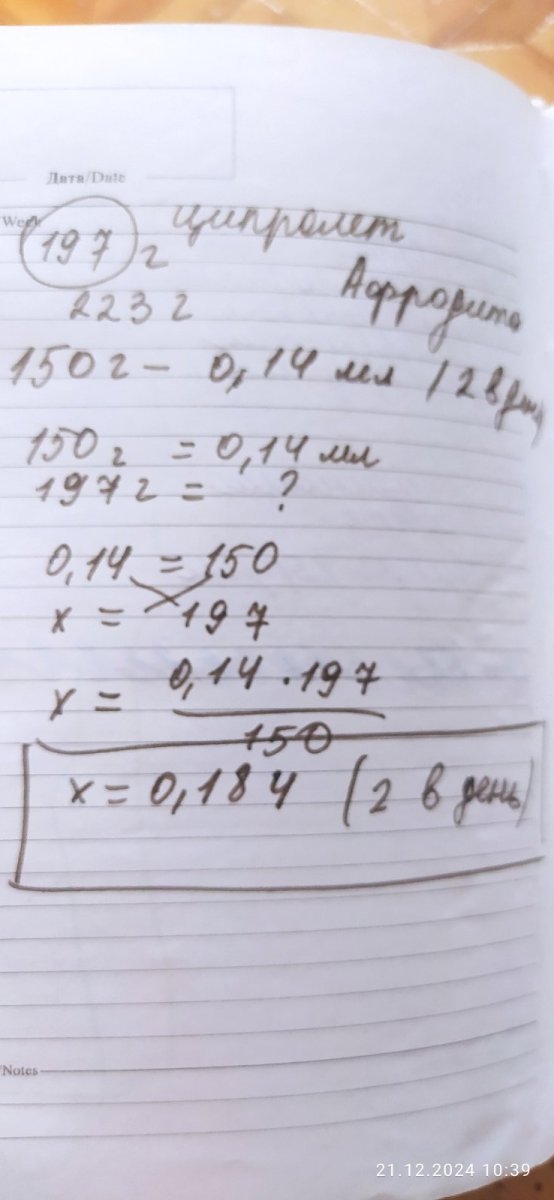 Дата/Date
Week
197 г ципролет
223 г Афродита
150 г - 0,14 мл (2 в день)
150 г = 0,14 мл
197 г = ?
0,14 = 150
x = 197
x = 0,14 · 197
150
x = 0,184 (2 в день)
/Notes
21.12.2024 10:39